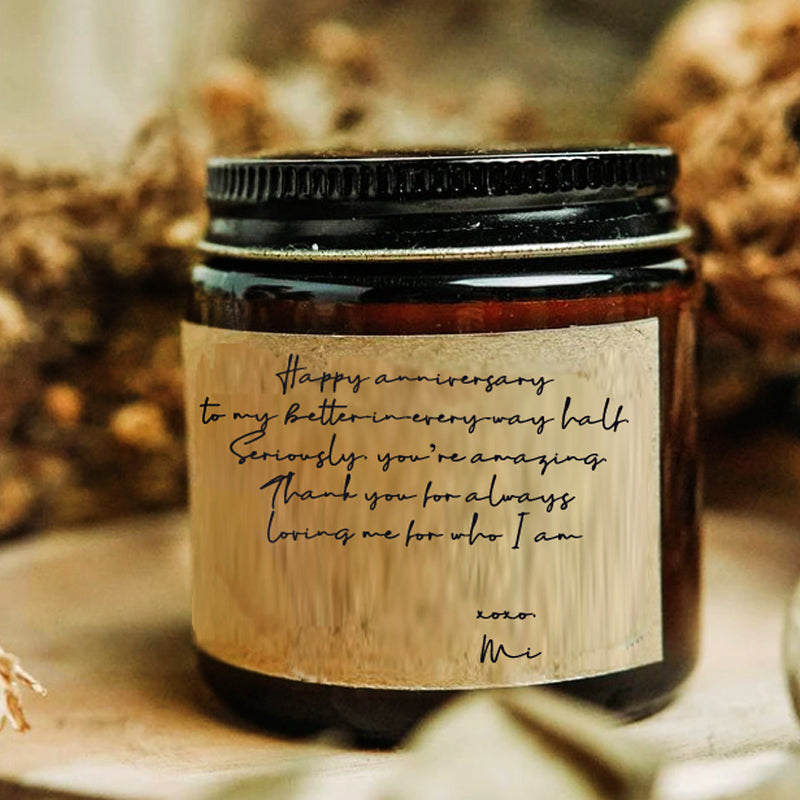 Happy anniversary
to my better-in-every-way half.
Seriously, you're amazing.
Thank you for always
loving me for who I am
xoxo,
Mi